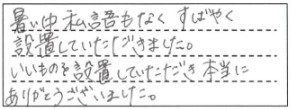 暑い中私語もなく すばやく
設置していたただきました。
いいものを設置していただき本当に
ありがとうございました。